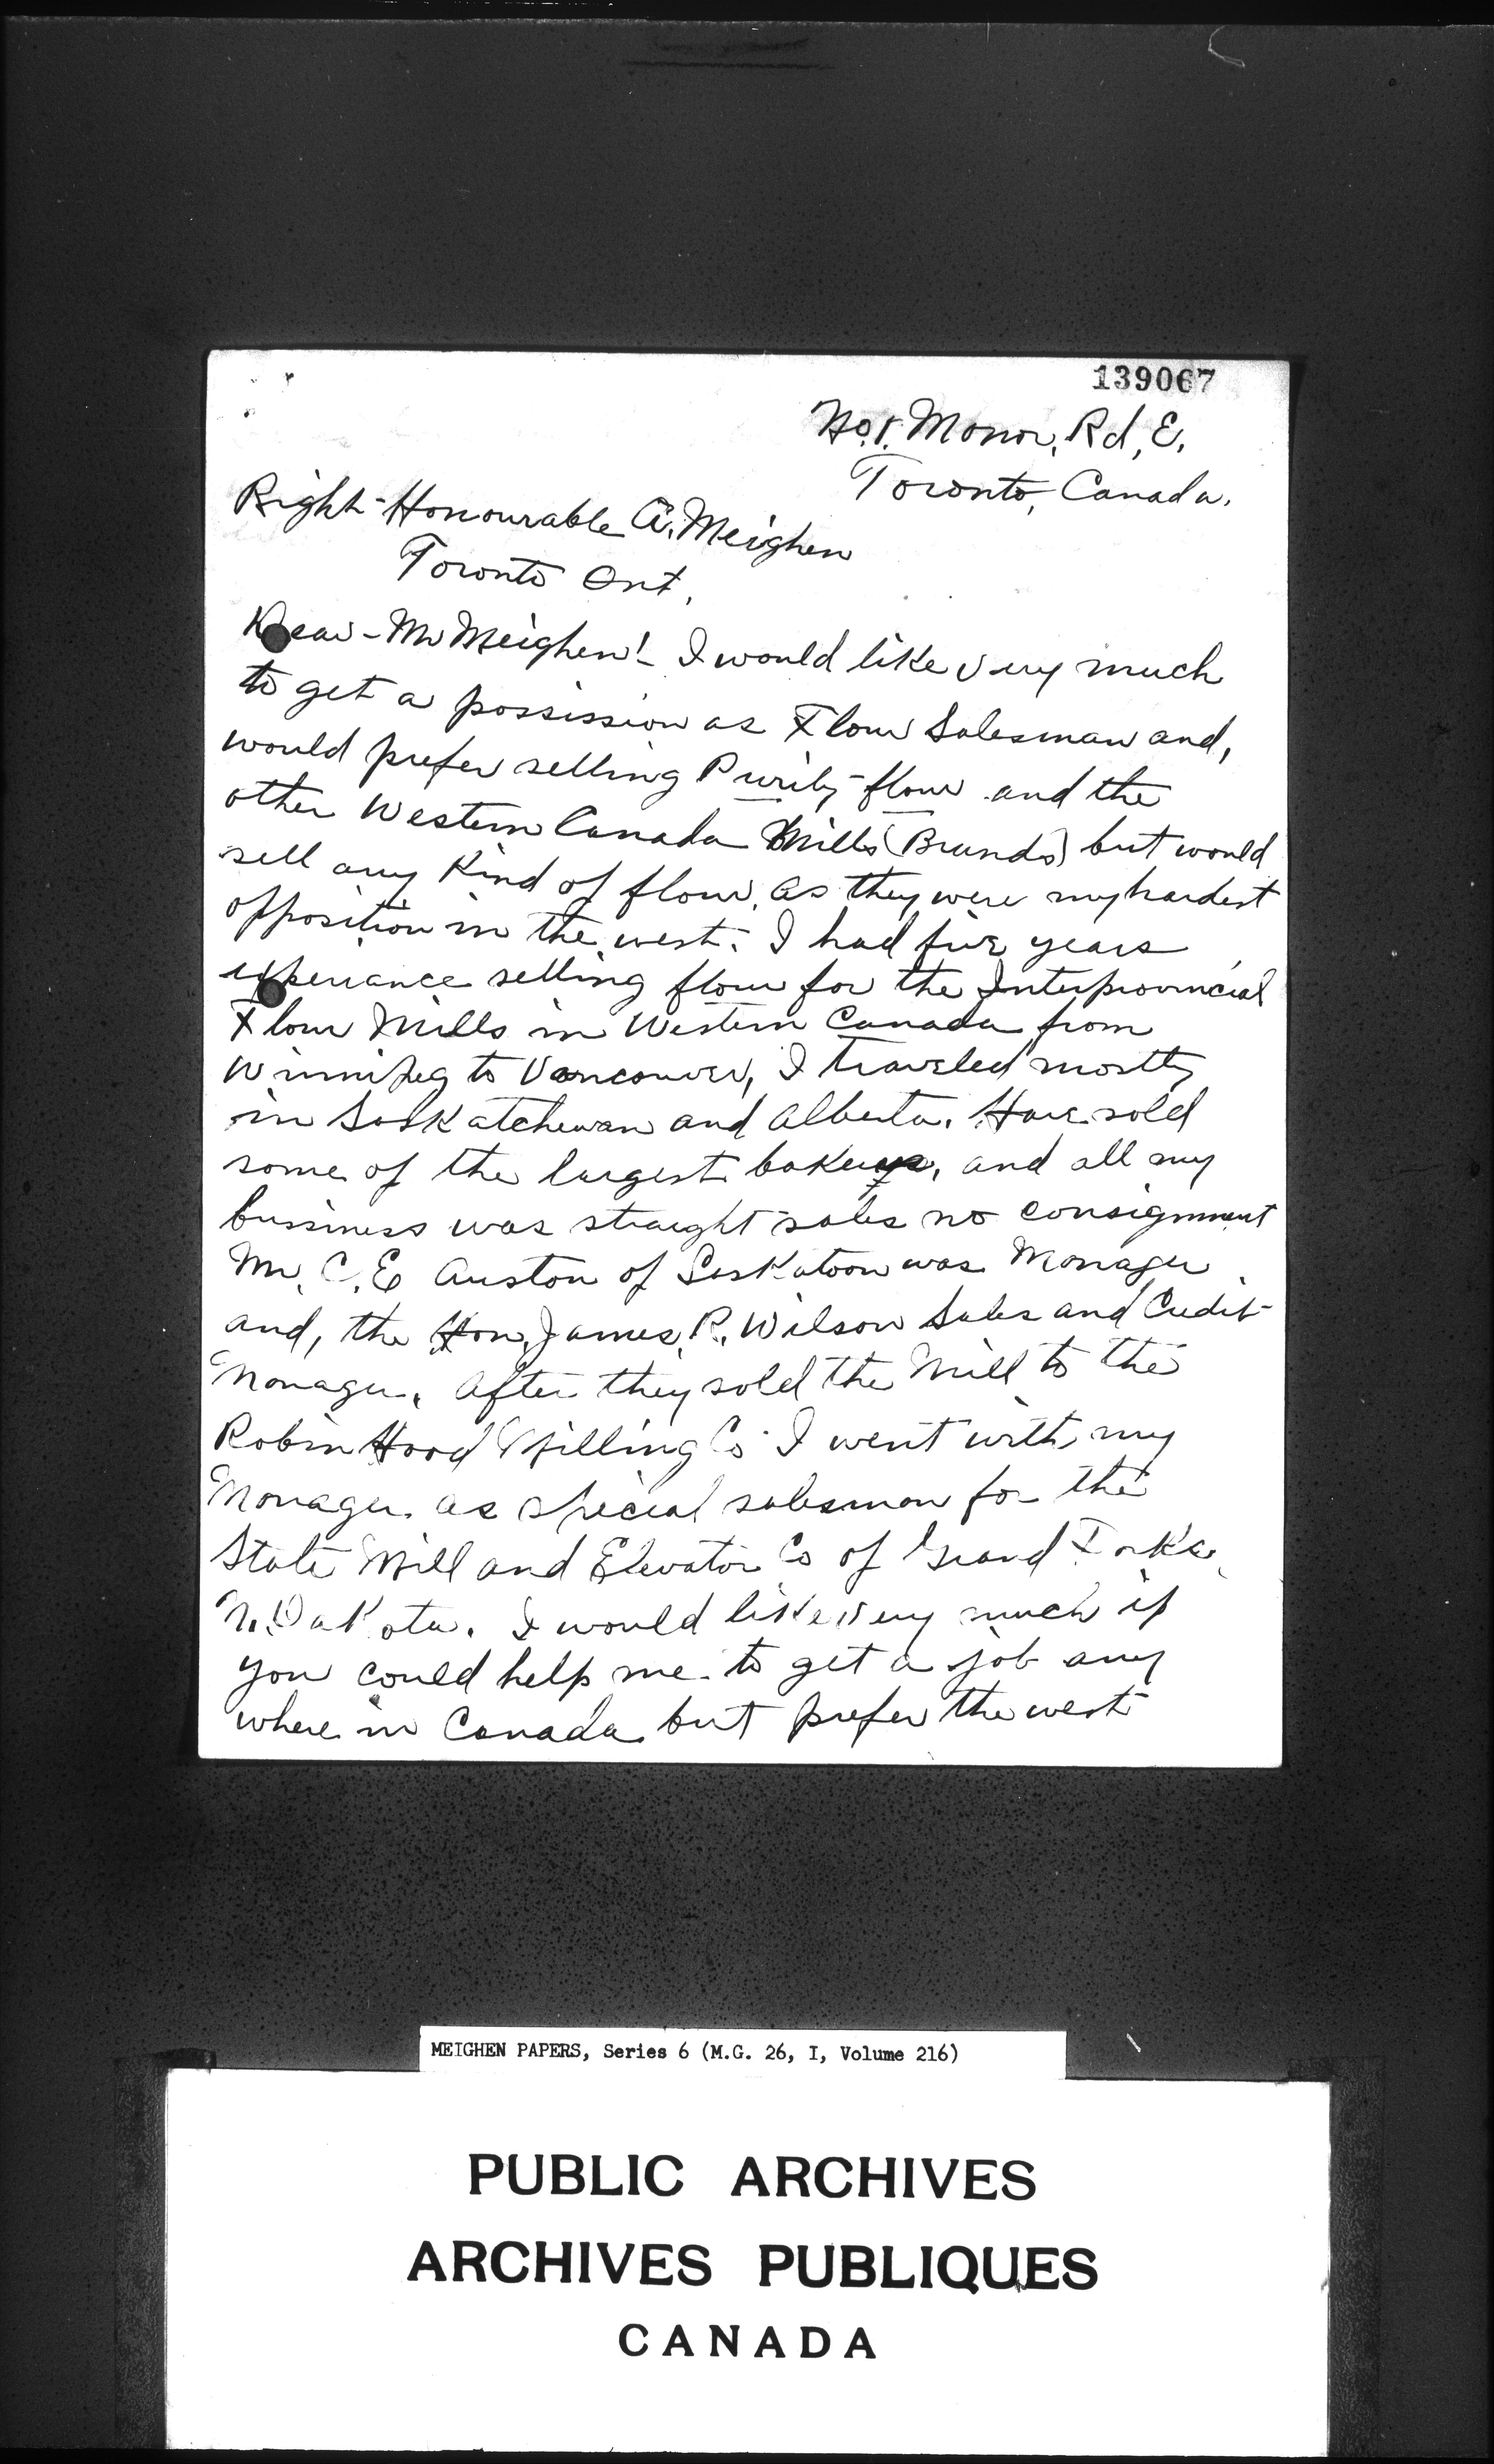 139067
No. 1. Manor, Rd, E.
Toronto, Canada.
Right-Honourable A. Meighen
Toronto Ont,
Dear-Mr Meighen!- I would like very much
to get a possission as Flour Salesman and,
would prefer selling Purity-flour and the
other Western Canada Mills (Brands) but would
sell any Kind of flour, as they were my hardest
opposition in the west. I had five years
experiance selling flour for the Interprovincial
Flour Mills in Western Canada from
Winnipeg to Vancouver, I traveled mostly
in Saskatchewan and Alberta. Have sold
some of the largest bakerys, and all my
bussiness was straight sales no consignment
Mr. C. E Auston of Saskatoon was Manager
and, the Hon. James. R. Wilson Sales and Credit
Manager. After they sold the Mill to the
Robin Hood Milling Co I went with my
Manager as special salesman for the
State Mill and Elevator Co of Grand Forks,
N. Dakota. I would like very much if
you could help me to get a job any
where in Canada but prefer the west
MEIGHEN PAPERS, Series 6 (M.G. 26, I, Volume 216)
PUBLIC ARCHIVES
ARCHIVES PUBLIQUES
CANADA